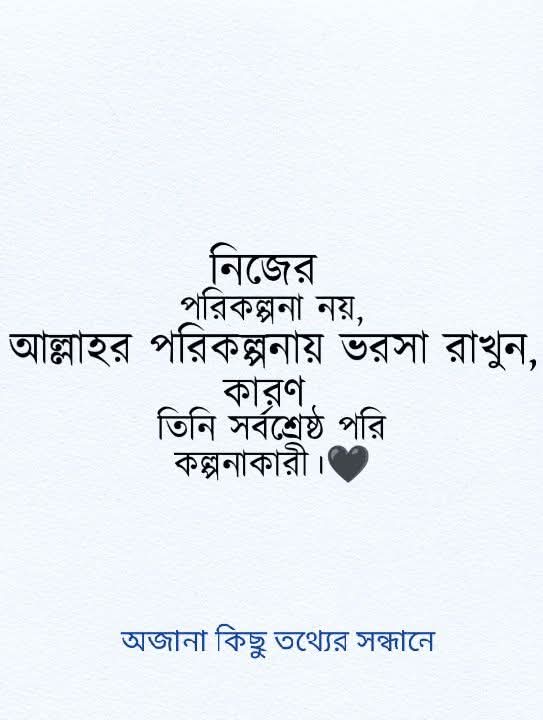 নিজের
পরিকল্পনা নয়,
আল্লাহর পরিকল্পনায় ভরসা রাখুন,
কারণ
তিনি সর্বশ্রেষ্ঠ পরি
কল্পনাকারী।🖤
অজানা কিছু তথ্যের সন্ধানে